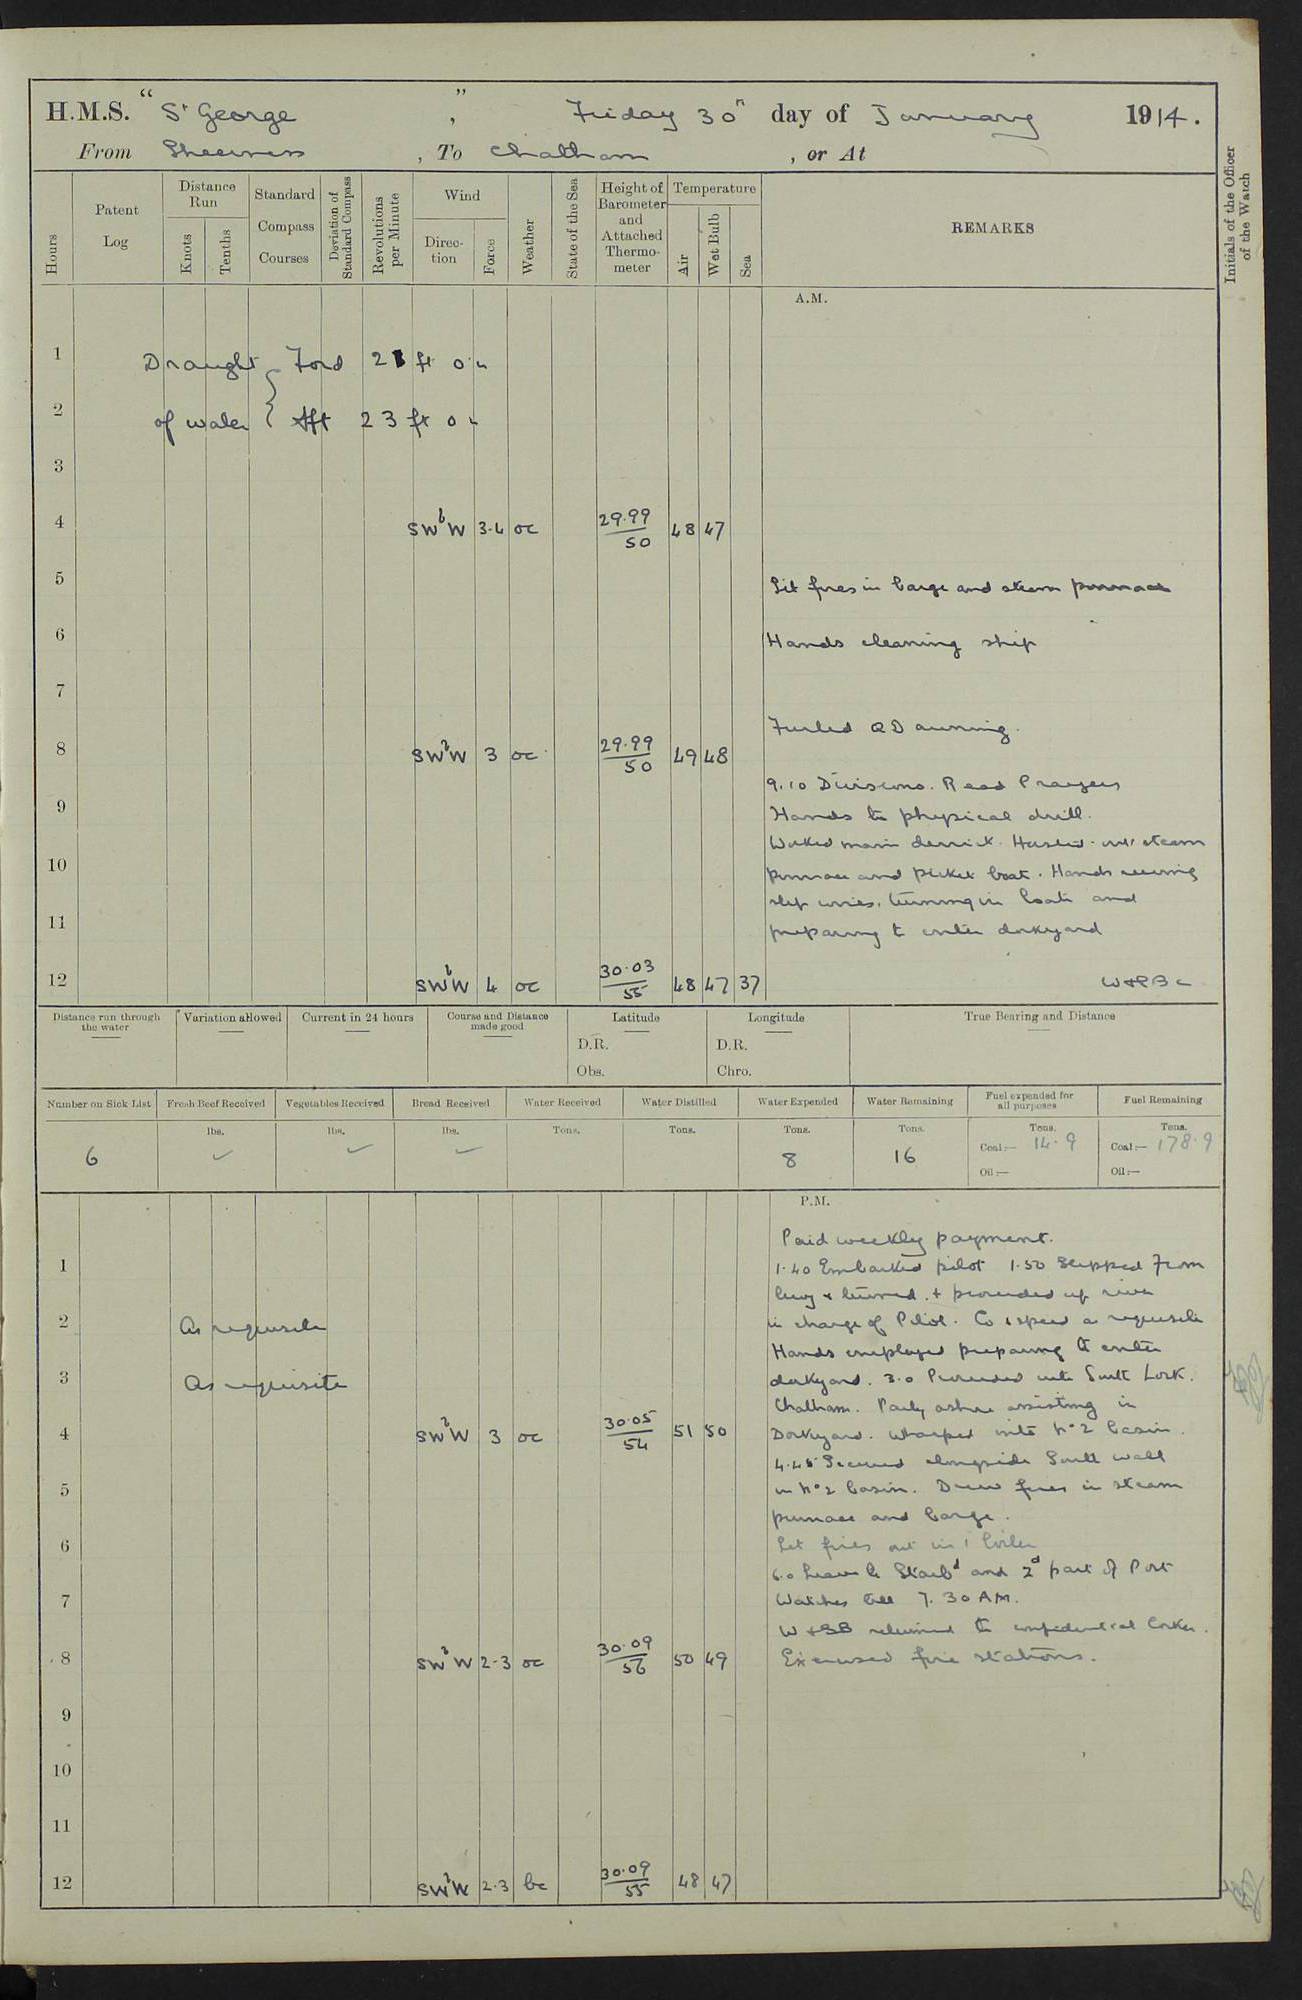 H.M.S. "St George", Friday 30th day of January 1914.
From Sheerness, To Chatham, or At
Hours
Patent Log
Distance Run
Knots
Tenths
Standard Compass Courses
Deviation of Standard Compass
Revolutions per Minute
Wind
Direction
Force
Weather
State of the Sea
Height of Barometer and Attached Thermometer
Temperature
Air
Wet Bulb
Sea
REMARKS
Initials of the Officer of the Watch
A.M.
1
Draught Ford 21 ft 0 in
2
of water Aft 23 ft 0 in
3
4 SWbW 3.4 oc 29.99 50 48 47
5 Lit fires in barge and steam pinnace
6 Hands cleaning ship
7
Furled QD awning.
8 SWbW 3 oc 29.99 50 49 48
9.10 Divisions. Read Prayers
9 Hands to physical drill.
Worked main derrick. Hoisted in steam
10 pinnace and picket boat. Hands reeving
slip wires, turning in boats and
11 preparing to enter dockyard
12 SWbW 4 oc 30.03 55 48 47 37
Distance run through the water
Variation allowed
Current in 24 hours
Course and Distance made good
Latitude
D.R.
Obs.
Longitude
D.R.
Chro.
True Bearing and Distance
Number on Sick List
Fresh Beef Received
Vegetables Received
Bread Received
Water Received
Water Distilled
Water Expended
Water Remaining
Fuel expended for all purposes
Fuel Remaining
lbs. lbs. lbs. Tons. Tons. Tons. Tons. Tons. Tons.
6 ✓ ✓ ✓ 8 16 Coal:— 14.9 Coal:— 178.9
Oil:— Oil:—
P.M.
Paid weekly payment.
1 1.40 Embarked pilot 1.50 Slipped from
buoy & turned. & proceeded up river
2 As requisite in charge of Pilot. Co & speed as requisite
Hands employed preparing to enter
3 As requisite dockyard. 3.0 Proceeded into South Lock.
Chatham. Party ashore assisting in
4 SWbW 3 oc 30.05 54 51 50 Dockyard. Warped into No 2 basin.
4.45 Secured alongside South wall
5 in No 2 basin. Drew fires in steam
pinnace and barge.
6 Let fires out in 1 boiler
6.0 Leave to Starbd and 2d part of Port
7 Watches till 7.30 AM.
returned to confidential locker.
8 SWbW 2.3 oc 30.09 56 50 49 Exercised fire stations.
9
10
11
12 SWbW 2.3 bc 30.09 55 48 47